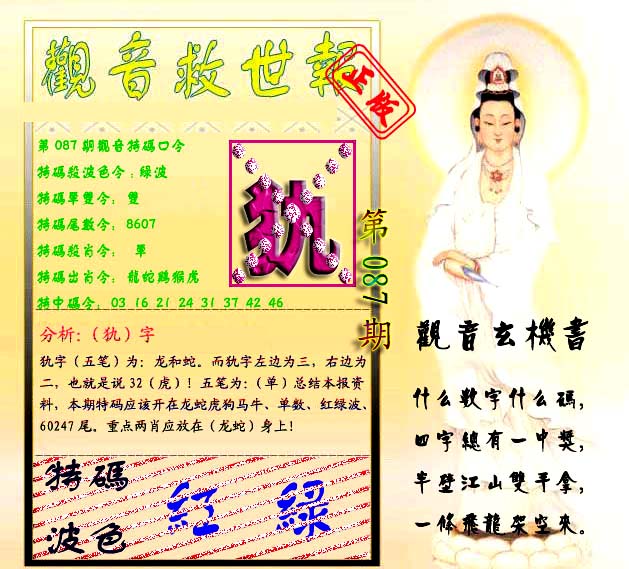 觀音救世報
正版
第087期觀音特碼口令
特碼殺波色令:綠波
特碼單雙令: 雙
特碼尾數令: 8607
特碼殺肖令: 單
特碼出肖令: 龍蛇鷄猴虎
特中碼令: 03 16 21 24 31 37 42 46
犰
第087期
分析:(犰)字
犰字(五笔)为:龙和蛇。而犰字左边为三，右边为
二，也就是说32(虎)！五笔为:(单)总结本报资
料，本期特码应该开在龙蛇虎狗马牛、单数、红绿波、
60247尾。重点两肖应放在(龙蛇)身上!
特碼
波色
紅 綠
觀音玄機書
什么數字什么碼，
四字總有一中獎，
半壁江山雙手拿，
一條飛龍架空來。